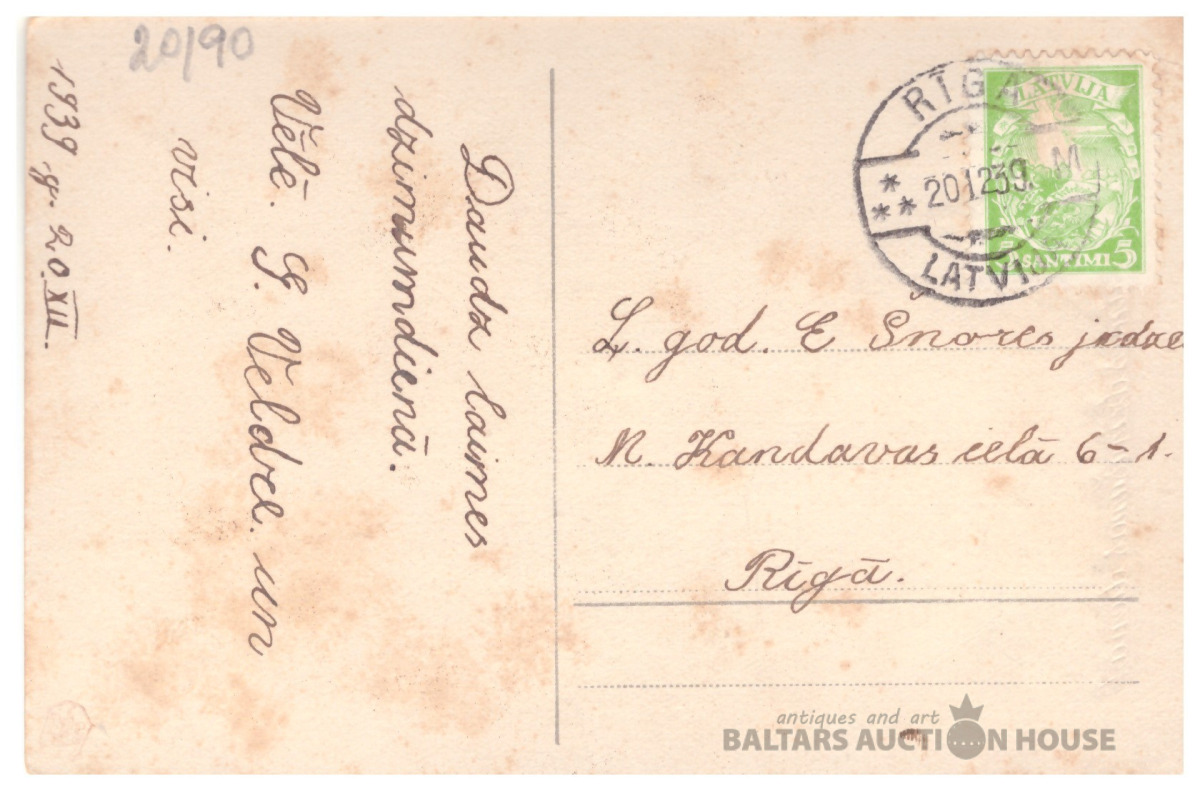 20/90
Daudz laimes
dzimumdienā.
Vēlē. G. Veldre. un
visi.
1939 g. 20 XII.
RĪGA
20.12.39. M
LATVIJA
LATVIJA
5 SANTIMI 5
L. god. E Šnores jxdze
M. Kandavas ielā 6-1.
Rīgā.
antiques and art
BALTARS AUCTION HOUSE